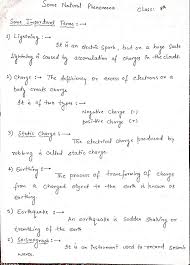 Some Natural Phenomena Class: 8th
Some Important Terms :→
1) Lightning :→
It is an electric spark, but on a huge scale
Lightning is caused by accumulation of charges in the clouds
2) Charge :→ The deficiency or excess of electrons on a
body create charge
It is of two types :-
Negative charge (-)
positive charge (+)
3) Static Charge :→
The electrical charge produced by
rubbing is called static charge.
4) Earthing :→
The process of transferring of charge
from a charged object to the earth is known as
earthing.
5) Earthquake :→
An earthquake is sudden shaking or
trembling of the earth
6) Seismograph :→
It is an Instrument used to record seismic
waves.